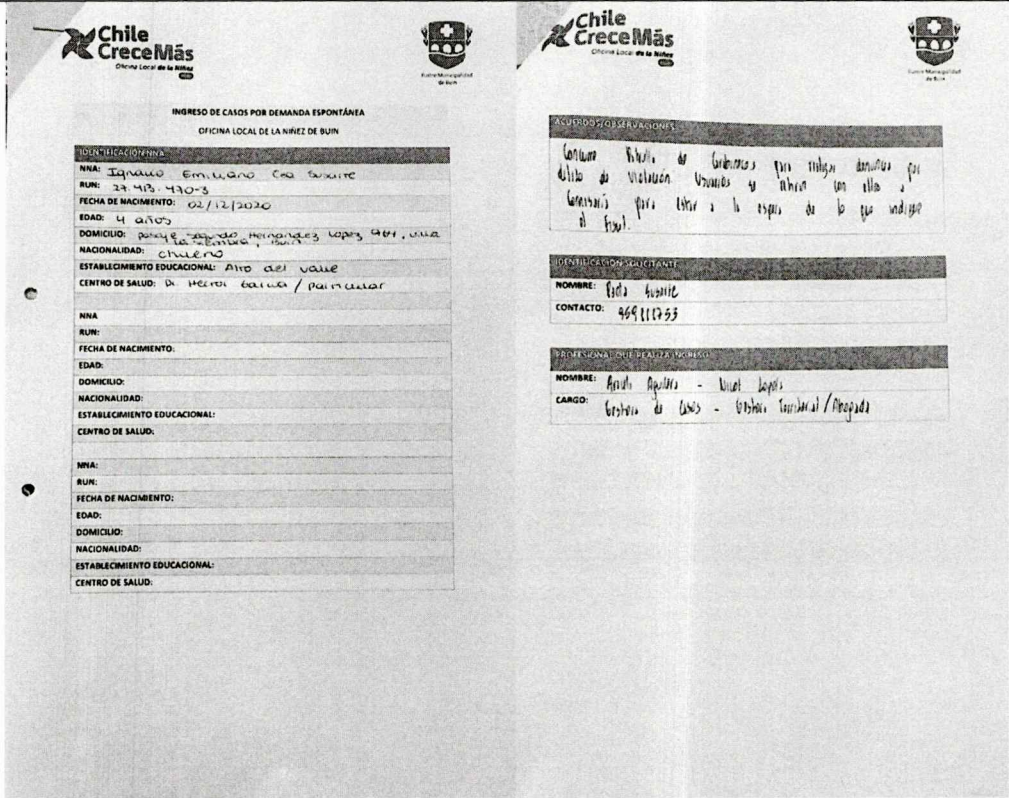 Chile
CreceMás
Oficina Local de la Niñez
Ilustre Municipalidad
de Buin
INGRESO DE CASOS POR DEMANDA ESPONTÁNEA
OFICINA LOCAL DE LA NIÑEZ DE BUIN
IDENTIFICACIÓN NNA
NNA: Ignacio Emiliano Cea Susarte
RUN: 27.413.470-3
FECHA DE NACIMIENTO: 02/12/2020
EDAD: 4 años
DOMICILIO: pasaje segundo Hernandez Lopez 964, villa
la siembra, Buin
NACIONALIDAD: chileno
ESTABLECIMIENTO EDUCACIONAL: Alto del valle
CENTRO DE SALUD: Dr. Hector Garcia / particular
NNA
RUN:
FECHA DE NACIMIENTO:
EDAD:
DOMICILIO:
NACIONALIDAD:
ESTABLECIMIENTO EDUCACIONAL:
CENTRO DE SALUD:
NNA:
RUN:
FECHA DE NACIMIENTO:
EDAD:
DOMICILIO:
NACIONALIDAD:
ESTABLECIMIENTO EDUCACIONAL:
CENTRO DE SALUD:
Chile
CreceMás
Oficina Local de la Niñez
Ilustre Municipalidad
de Buin
ACUERDOS/OBSERVACIONES
Concurre Patrulla de Carabineros para realizar denuncias por
delito de violación. Usuarios se retiran con ellos a
Comisaría para estar a la espera de lo que indique
el fiscal.
IDENTIFICACIÓN SOLICITANTE
NOMBRE: Susarte
CONTACTO: 959111753
PROFESIONAL QUE REALIZA INGRESO
NOMBRE: Aguilera -
CARGO: Gestora de Casos - Gestora Territorial / Abogada